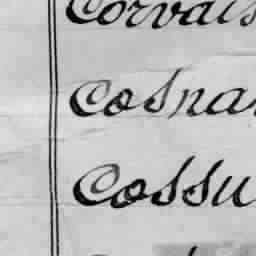 Corvais
Cosnar
Cossu